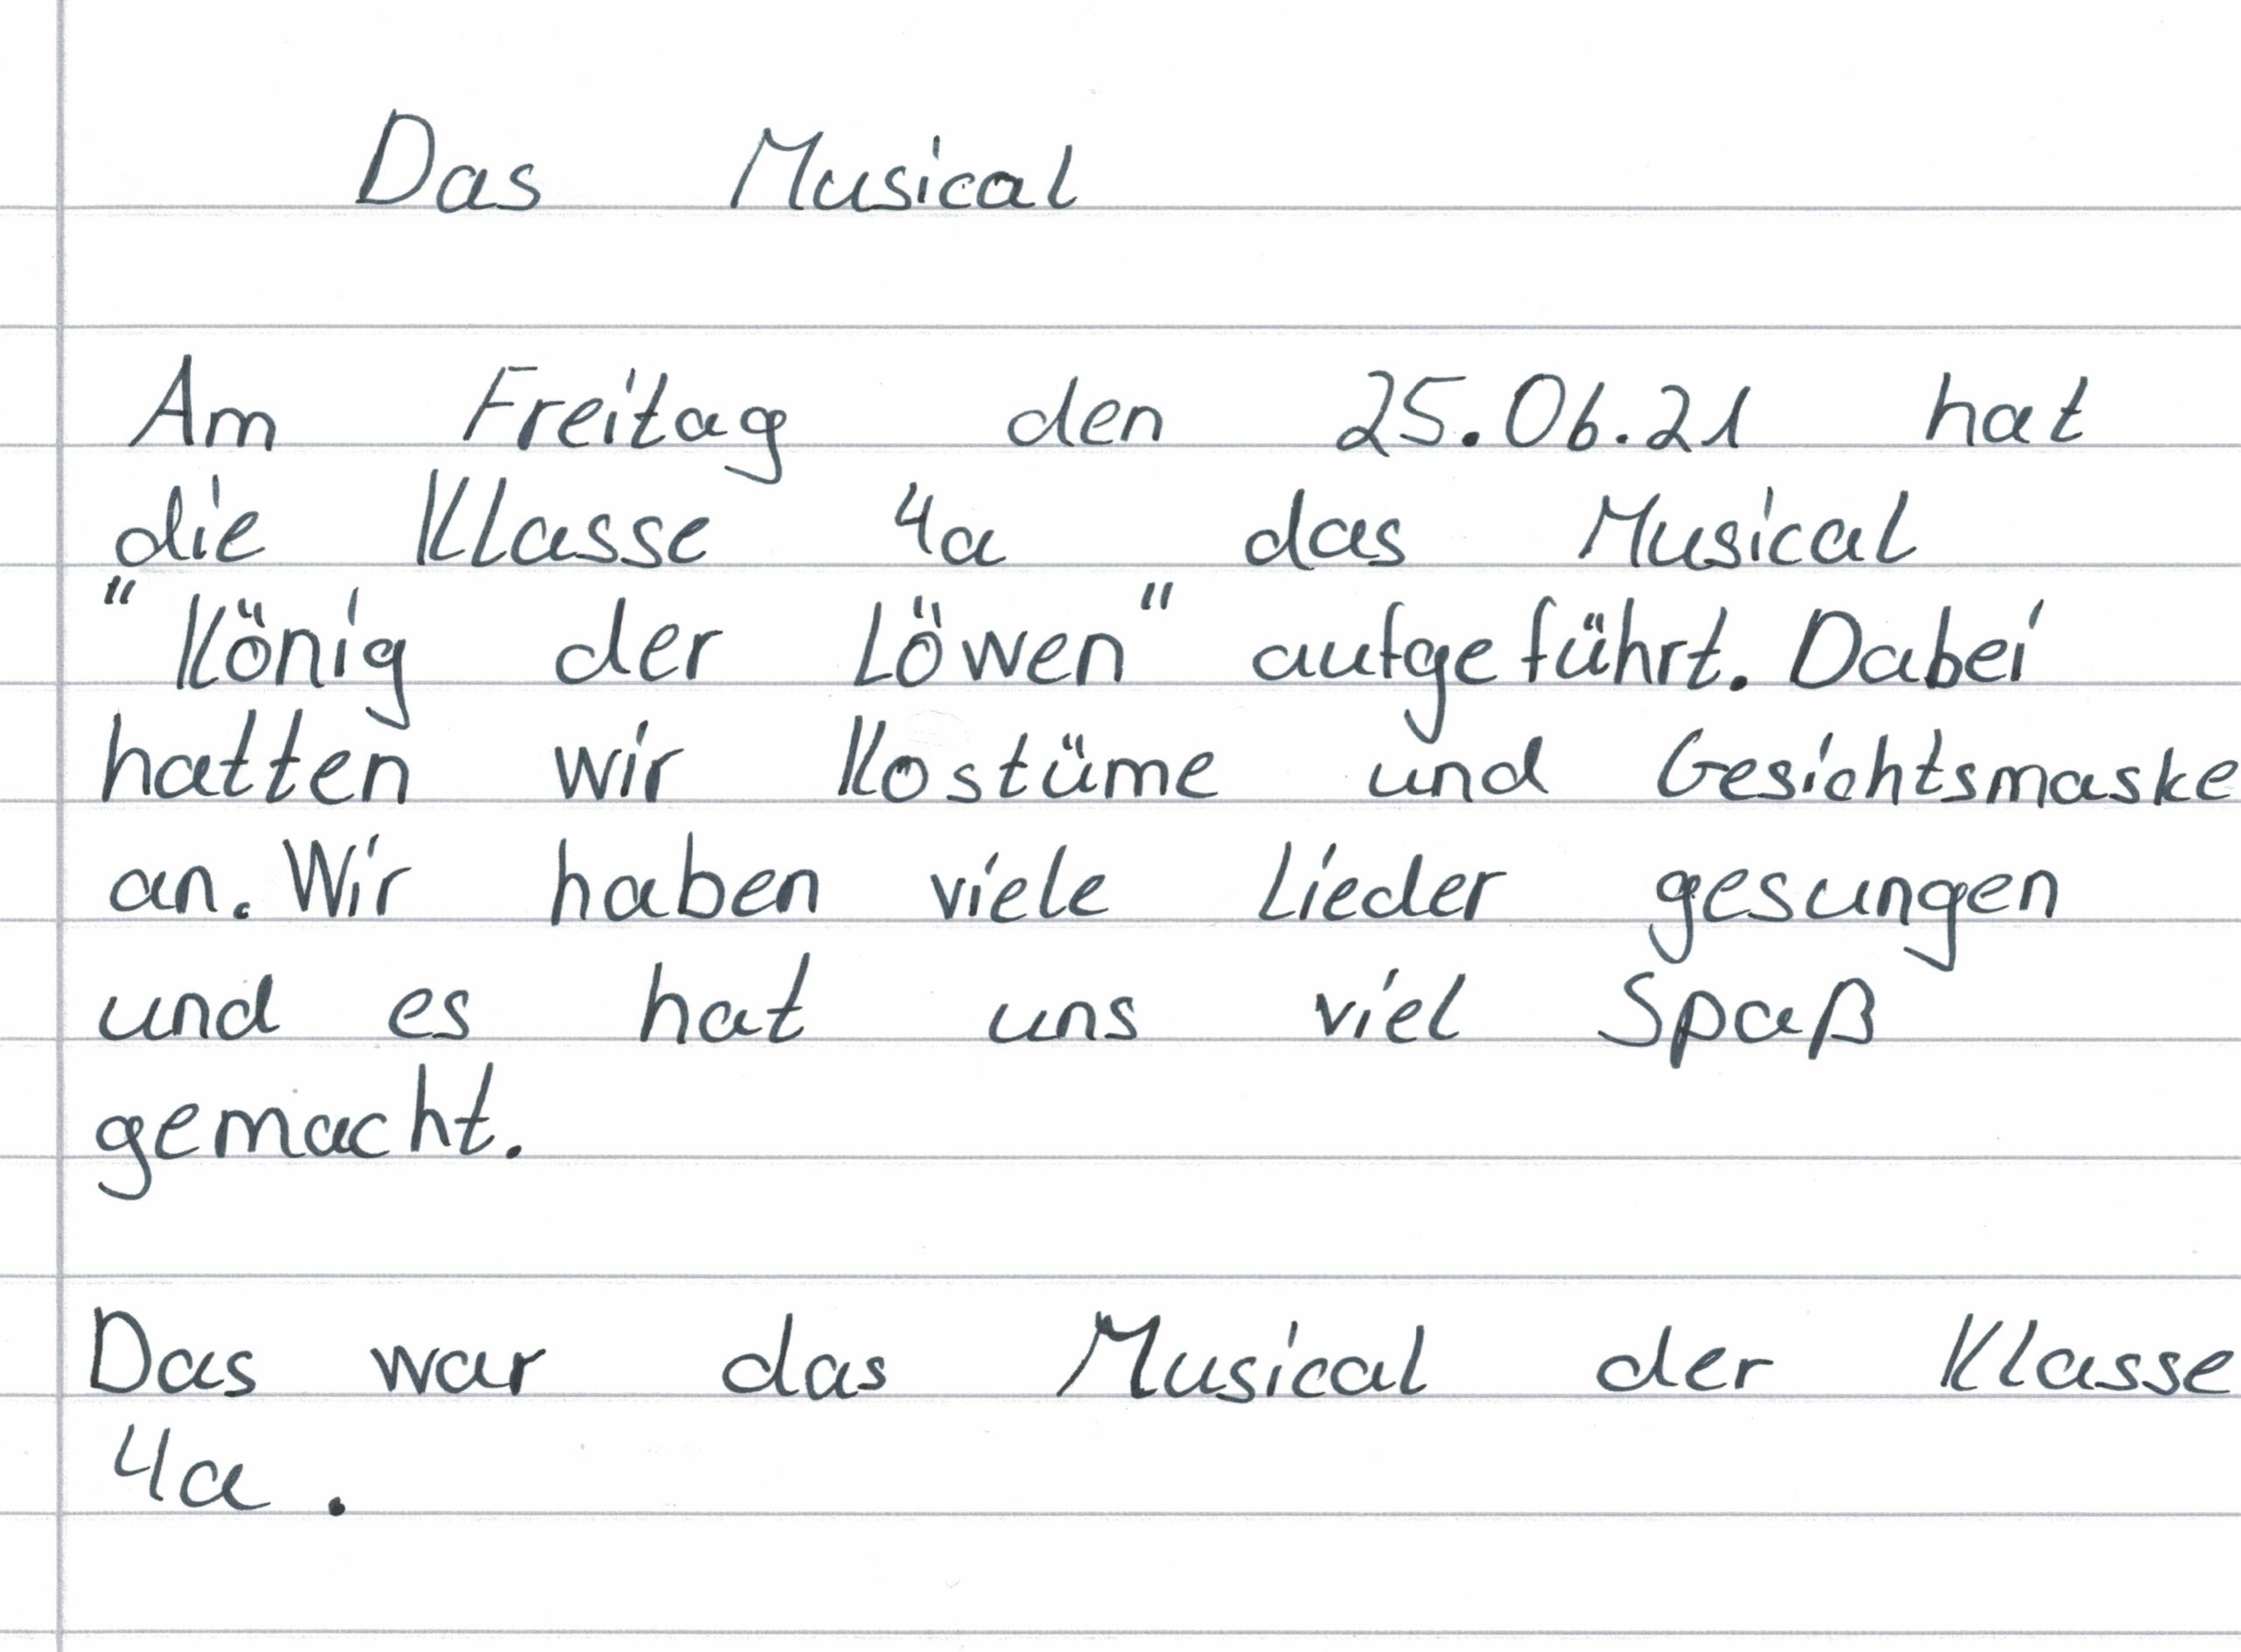 Das Musical
Am Freitag den 25.06.21 hat
die Klasse 4a das Musical
"König der Löwen" aufgeführt. Dabei
hatten wir Kostüme und Gesichtsmaske
an. Wir haben viele Lieder gesungen
und es hat uns viel Spaß
gemacht.
Das war das Musical der Klasse
4a.